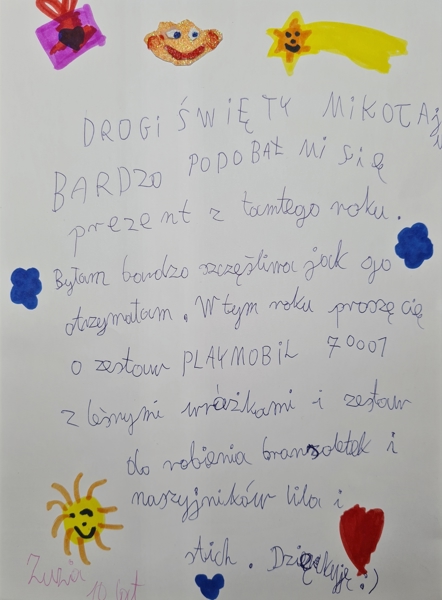 DROGI ŚWIĘTY MIKOŁAJ
BARDZO PODOBAŁ MI się
prezent z tamtego roku.
Byłam bardzo szczęśliwa jak go
otrzymałam. W tym roku proszę cię
o zestaw PLAYMOBIL 70001
z leśnymi wróżkami i zestaw
do robienia bransoletek i
naszyjników lila i
stich. Dziękuję :)
Zuzia
10 lat